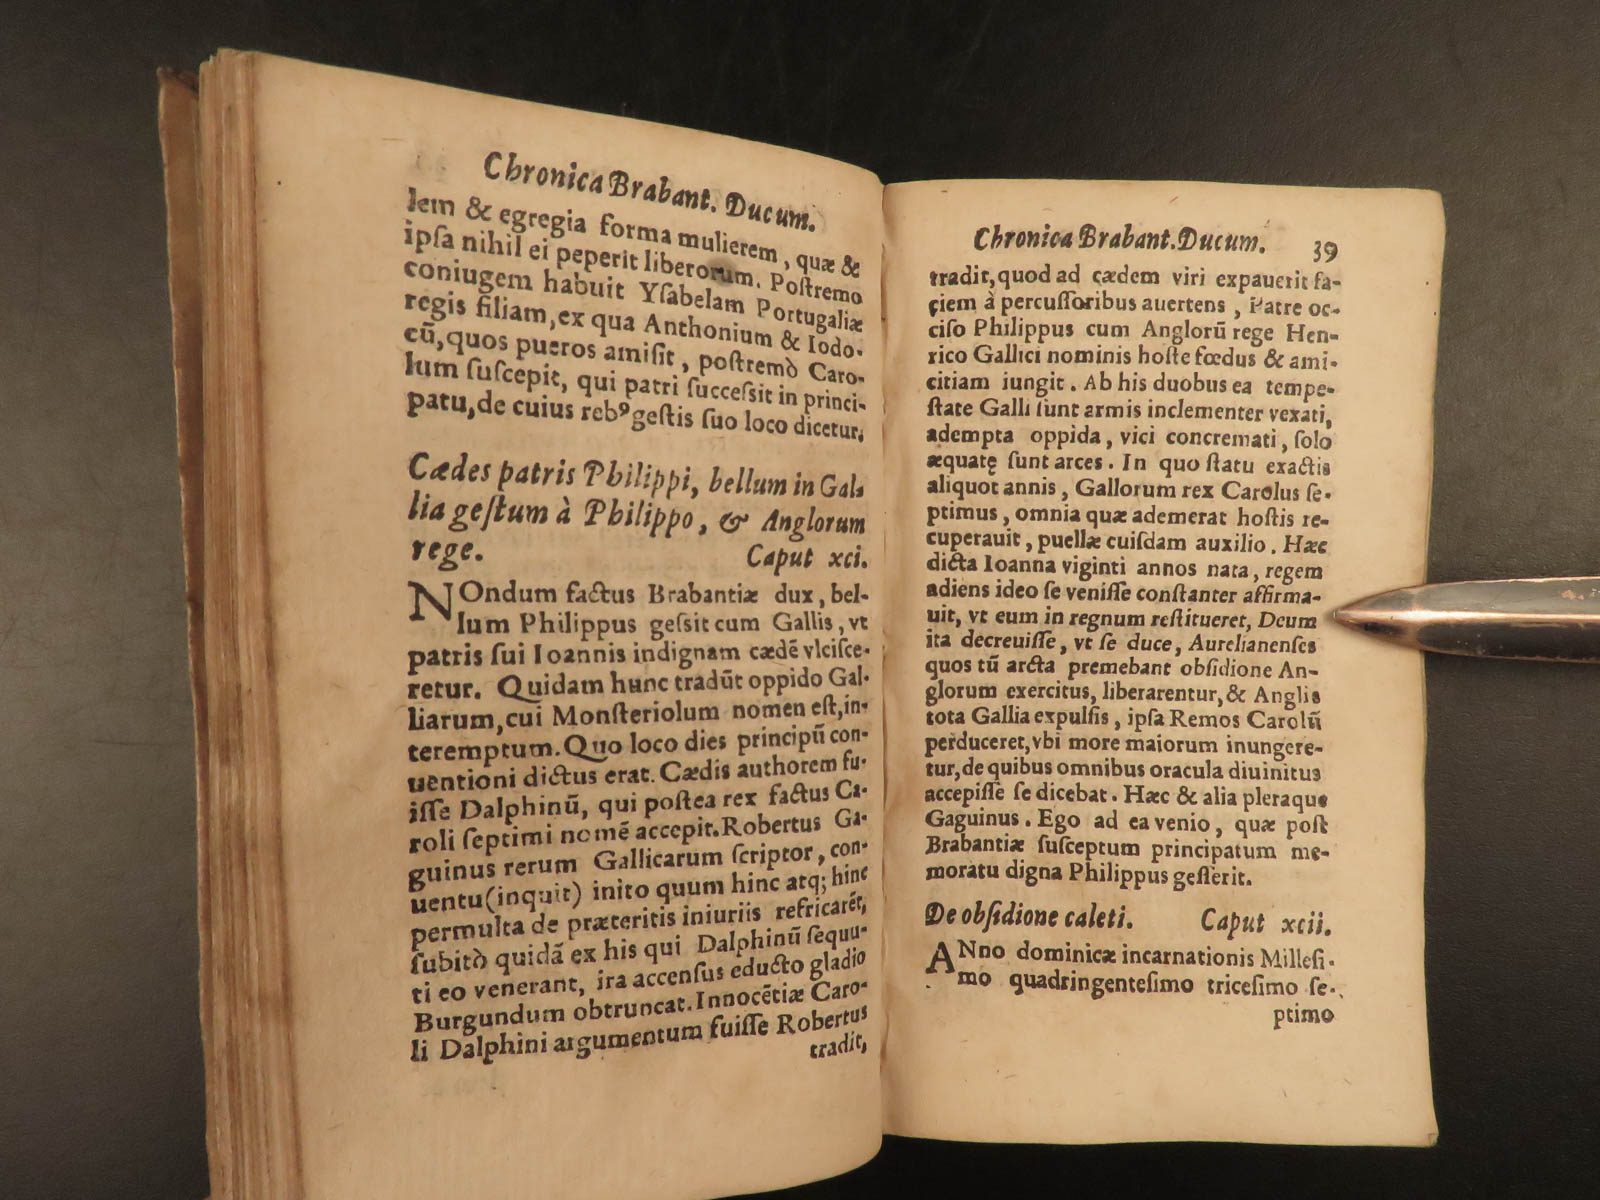 Chronica Brabant. Ducum.
lem & egregia forma mulierem, quæ &
ipſa nihil ei peperit liberorum. Poſtremo
coniugem habuit Yſabelam Portugaliæ
regis filiam, ex qua Anthonium & Iodo-
cū, quos pueros amiſit, poſtremò Caro-
lum ſuſcepit, qui patri ſucceſsit in princi-
patu, de cuius rebꝰ geſtis ſuo loco dicetur.
Cædes patris Philippi, bellum in Gal-
lia geſtum à Philippo, & Anglorum
rege. Caput xci.
NOndum factus Brabantiæ dux, bel-
lum Philippus geſsit cum Gallis, vt
patris ſui Ioannis indignam cædē vlciſce-
retur. Quidam hunc tradūt oppido Gal-
liarum, cui Monſteriolum nomen eſt, in-
teremptum. Quo loco dies principū con-
uentioni dictus erat. Cædis authorem fu-
iſſe Dalphinū, qui poſtea rex factus Ca-
roli ſeptimi nomē accepit. Robertus Ga-
guinus rerum Gallicarum ſcriptor, con-
uentu (inquit) inito quum hinc atq; hinc
permulta de præteritis iniuriis refricarēt,
ſubitò quidā ex his qui Dalphinū ſequu-
ti eo venerant, ira accenſus educto gladio
Burgundum obtruncat. Innocētiæ Caro-
li Dalphini argumentum fuiſſe Robertus
tradit,
Chronica Brabant. Ducum. 39
tradit, quod ad cædem viri expauerit fa-
ciem à percuſſoribus auertens, Patre oc-
ciſo Philippus cum Anglorū rege Hen-
rico Gallici nominis hoſte fœdus & ami-
citiam iungit. Ab his duobus ea tempe-
ſtate Galli ſunt armis inclementer vexati,
adempta oppida, vici concremati, ſolo
æquatę ſunt arces. In quo ſtatu exactis
aliquot annis, Gallorum rex Carolus ſe-
ptimus, omnia quæ ademerat hoſtis re-
cuperauit, puellæ cuiſdam auxilio. Hæc
dicta Ioanna viginti annos nata, regem
adiens ideo ſe veniſſe conſtanter affirma-
uit, vt eum in regnum reſtitueret, Deum
ita decreuiſſe, vt ſe duce, Aurelianenſes
quos tū arcta premebant obſidione An-
glorum exercitus, liberarentur, & Anglis
tota Gallia expulſis, ipſa Remos Carolū
perduceret, vbi more maiorum inungere-
tur, de quibus omnibus oracula diuinitus
accepiſſe ſe dicebat. Hæc & alia pleraque
Gaguinus. Ego ad ea venio, quæ poſt
Brabantiæ ſuſceptum principatum me-
moratu digna Philippus geſſerit.
De obſidione caleti. Caput xcii.
ANno dominicæ incarnationis Milleſi-
mo quadringenteſimo triceſimo ſe-
ptimo